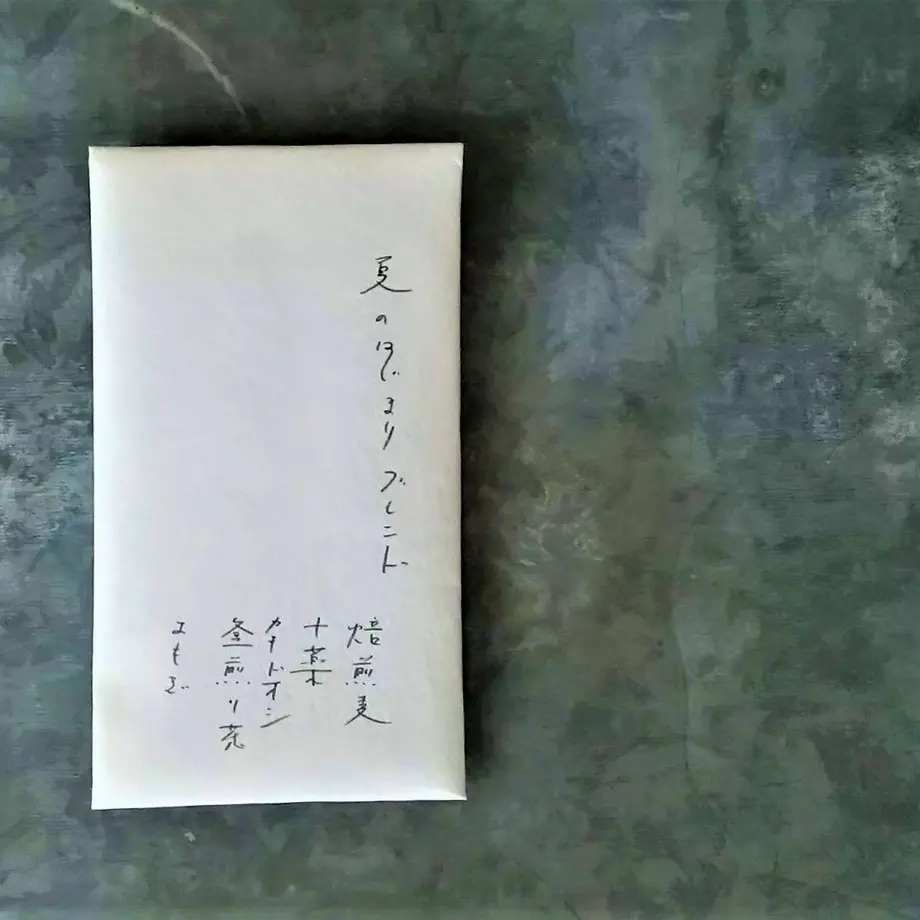 夏のはじまりブレンド
焙煎麦
十薬
カキドオシ
釜煎り茶
よもぎ